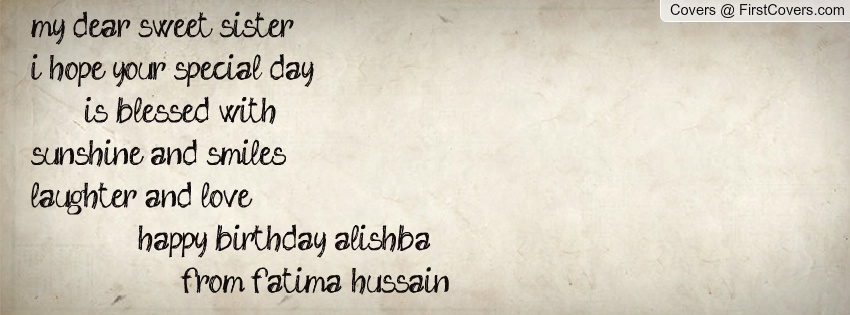 Covers @ FirstCovers.com
my dear sweet sister
i hope your special day
is blessed with
sunshine and smiles
laughter and love
happy birthday alishba
from fatima hussain